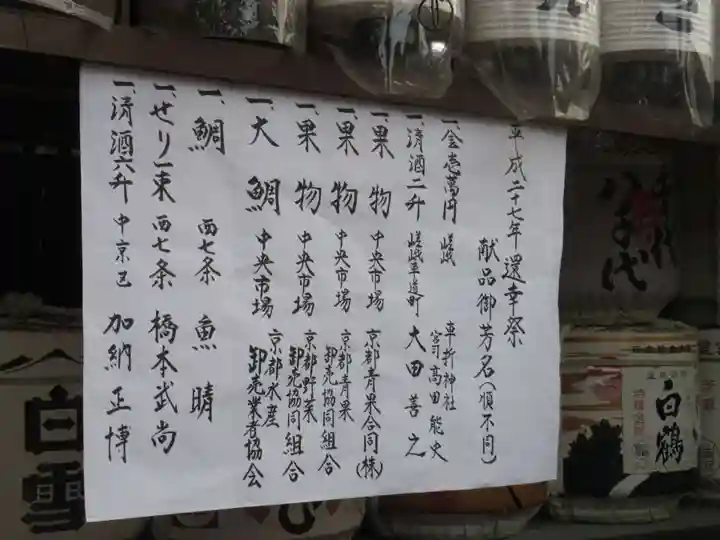 平成二十七年 還幸祭
献品御芳名(順不同)
一、金壱萬円 嵯峨 車折神社
宮司 高田能史
一、清酒二升 嵯峨 大田善之
一、果物 中央市場 京都青果合同(株)
一、果物 中央市場 京都青果
卸売協同組合
一、果物 中央市場 京都野菜
卸売協同組合
一、大鯛 中央市場 京都水産
卸売業者協会
一、鯛 西七条 魚晴
一、せり一束 西七条 橋本武尚
一、清酒六升 中京区 加納正博
白雪
八千代
白鶴